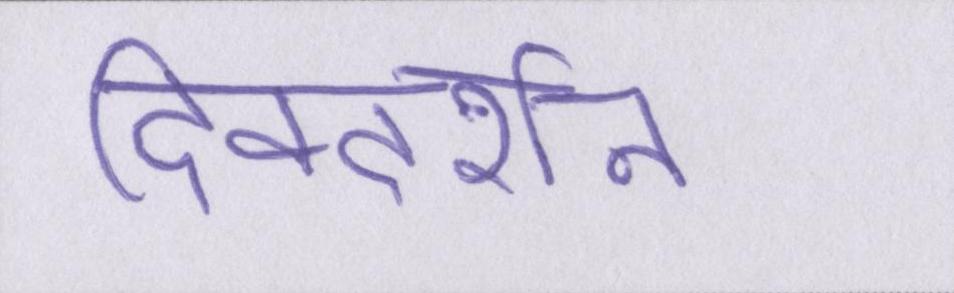 दिक्दर्शन